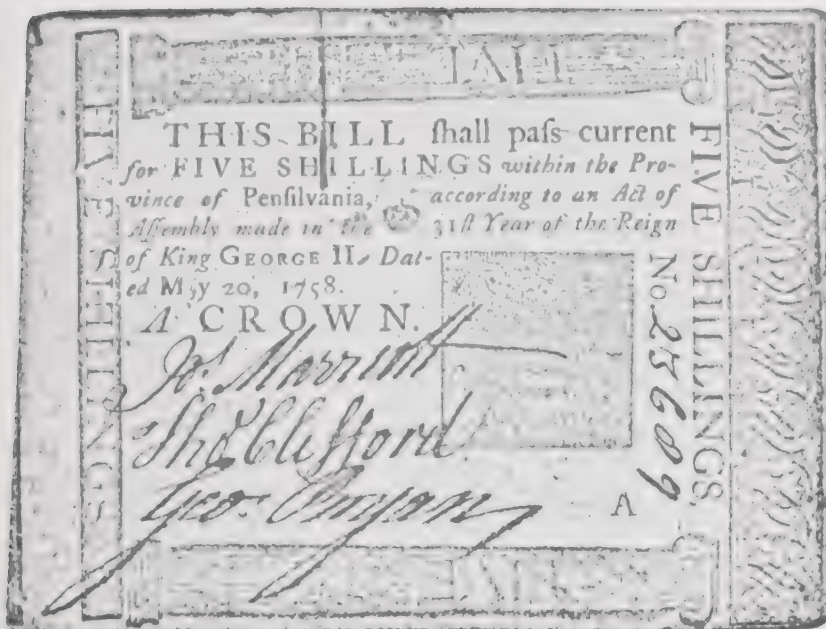 FIVE
FIVE SHILLINGS
THIS BILL ſhall paſs current
for FIVE SHILLINGS within the Pro-
vince of Penſilvania, according to an Act of
Aſſembly made in the 31ſt Year of the Reign
of King GEORGE II. Dat-
ed May 20, 1758.
A CROWN.
Jos. Marriott
Thos Clifford
Geo.
A
FIVE SHILLINGS,
No 25609
FIVE